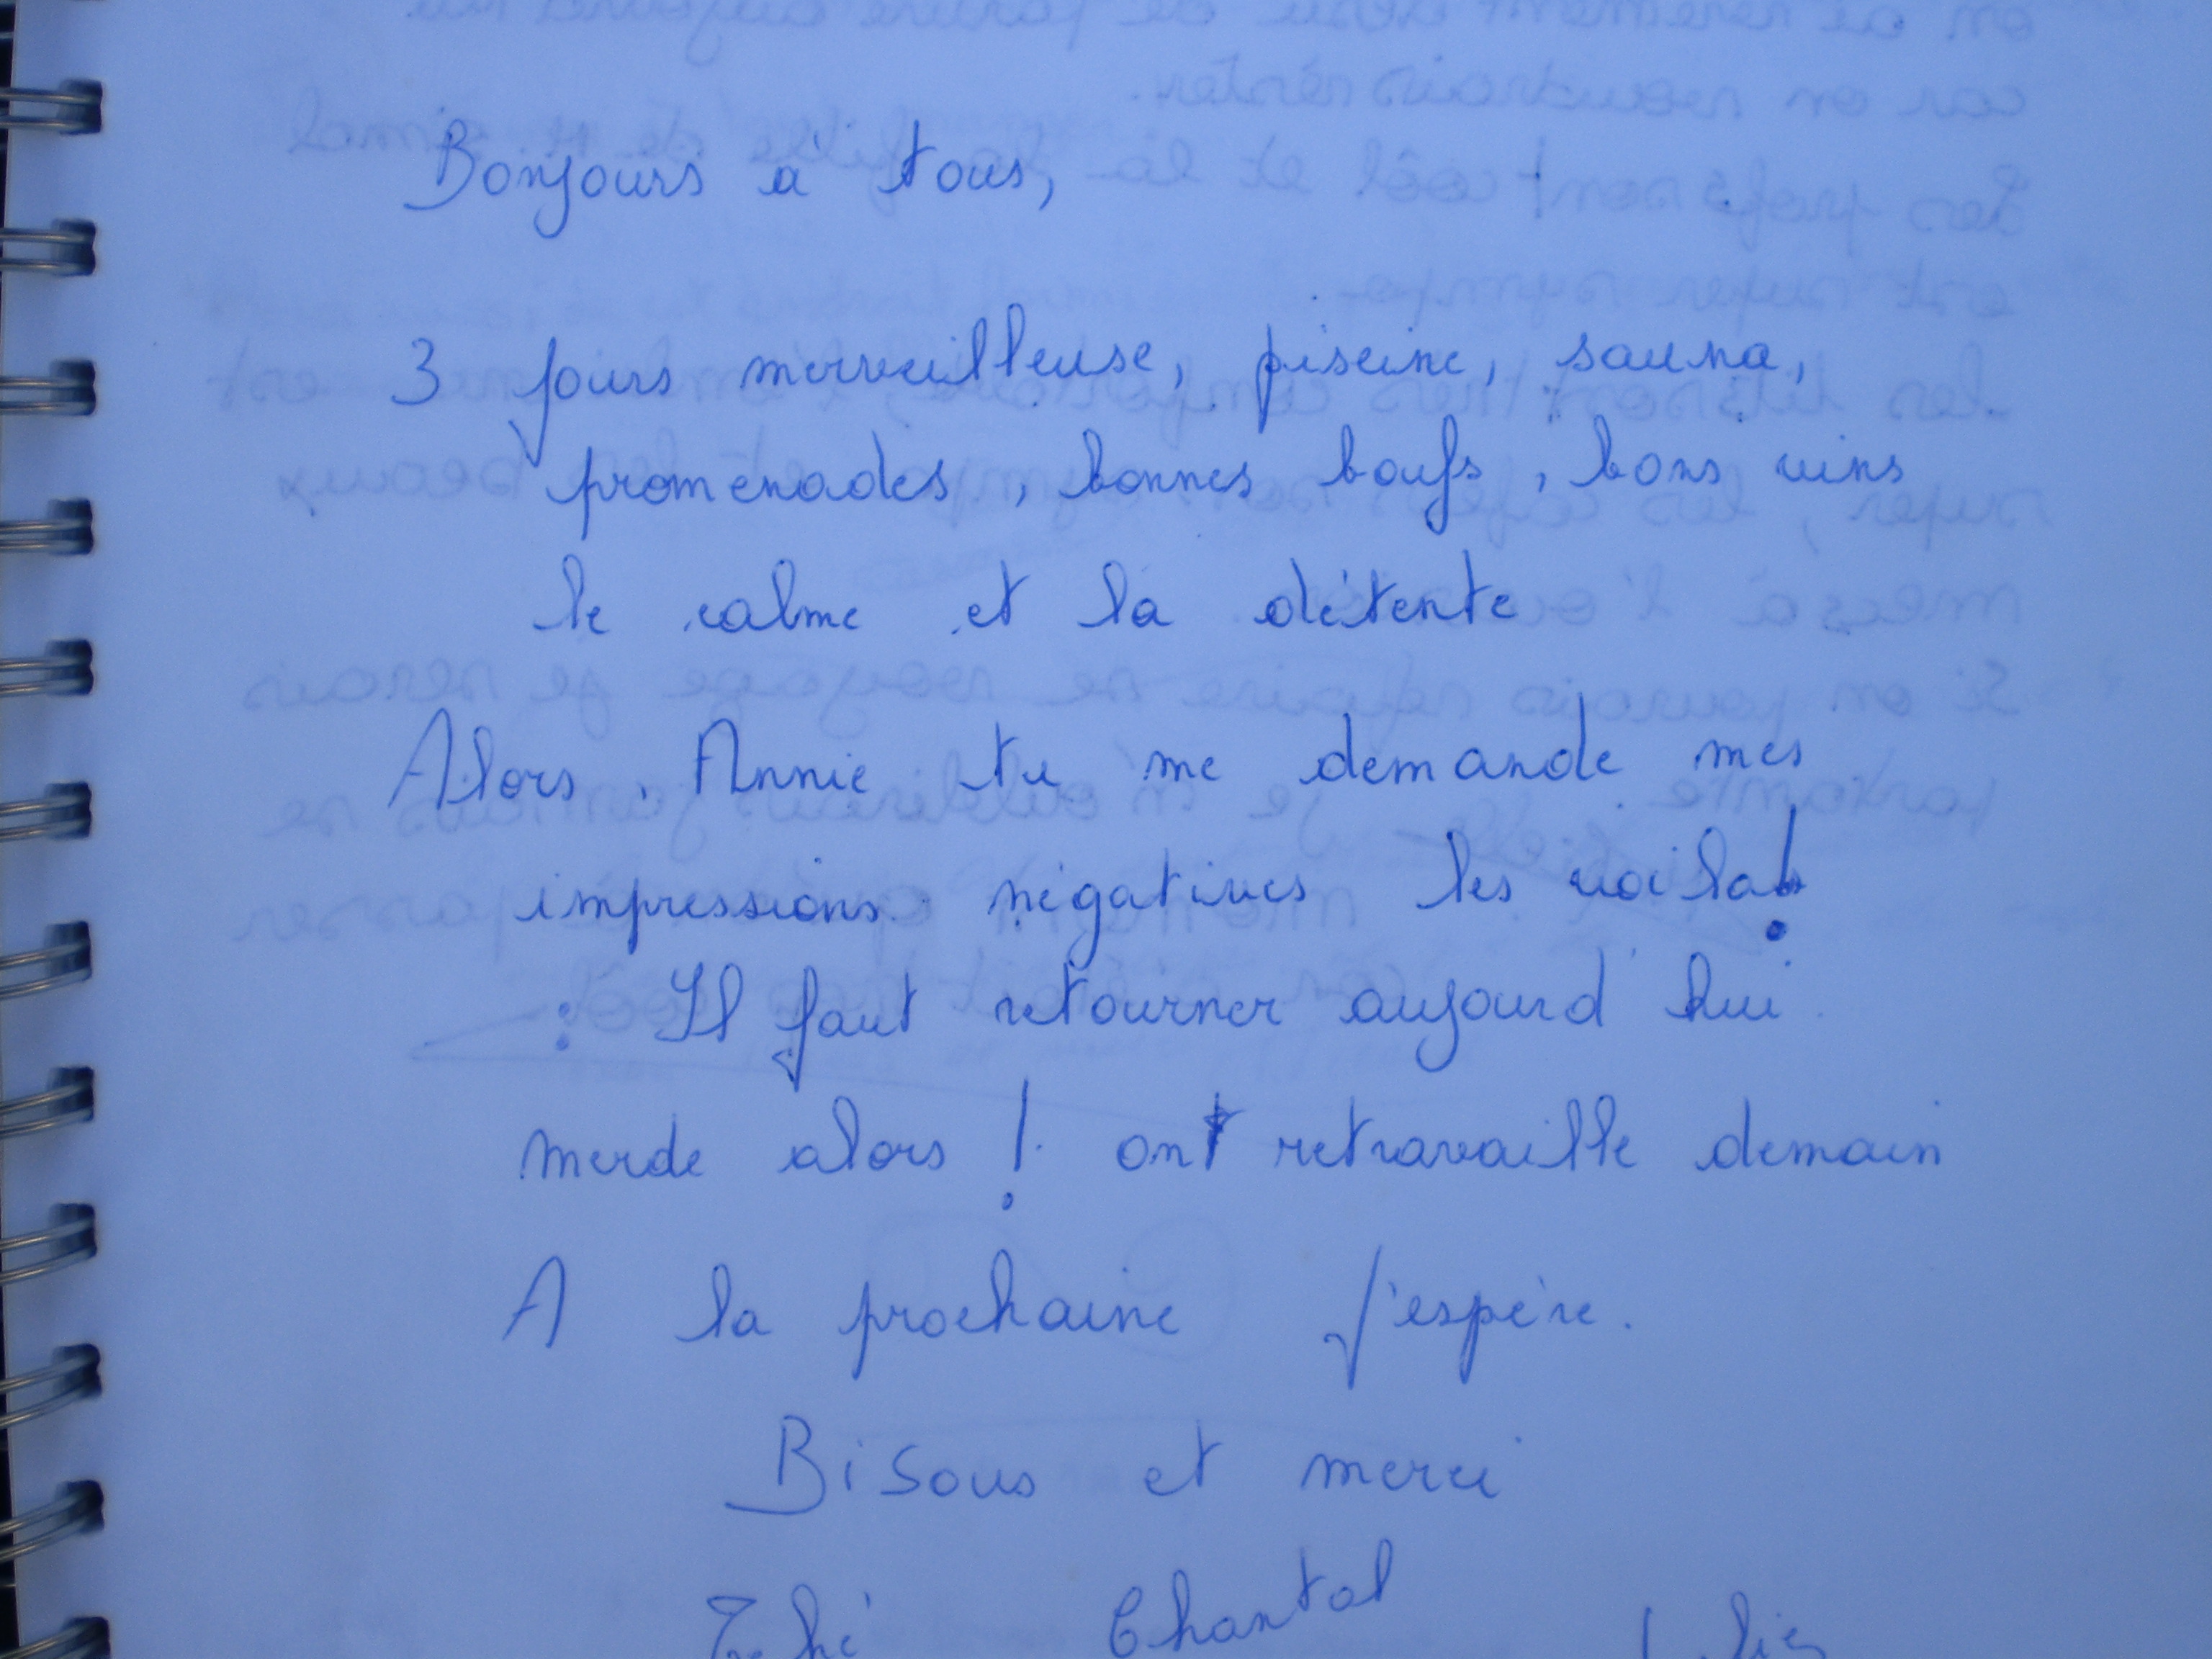 Bonjours à tous,
3 jours merveilleuse, piscine, sauna,
promenades, bonnes boufs, bons vins
le calme et la détente
Alors, Annie tu me demande mes
impressions négatives les voila!
: Il faut retourner aujourd'hui
merde alors ! ont retravaille demain
A la prochaine j'espère.
Bisous et merci
Chantal